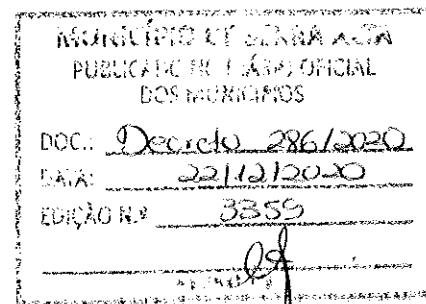 MUNICÍPIO DE SERRA ALTA
PUBLICADO NO DIÁRIO OFICIAL
DOS MUNICÍPIOS
DOC.: Decreto 286/2020
DATA: 22/12/2020
EDIÇÃO N.º 3355